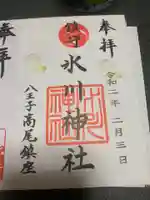 奉拝
令和二年二月三日
鎮守
氷川神社
八王子高尾鎮座
奉拝